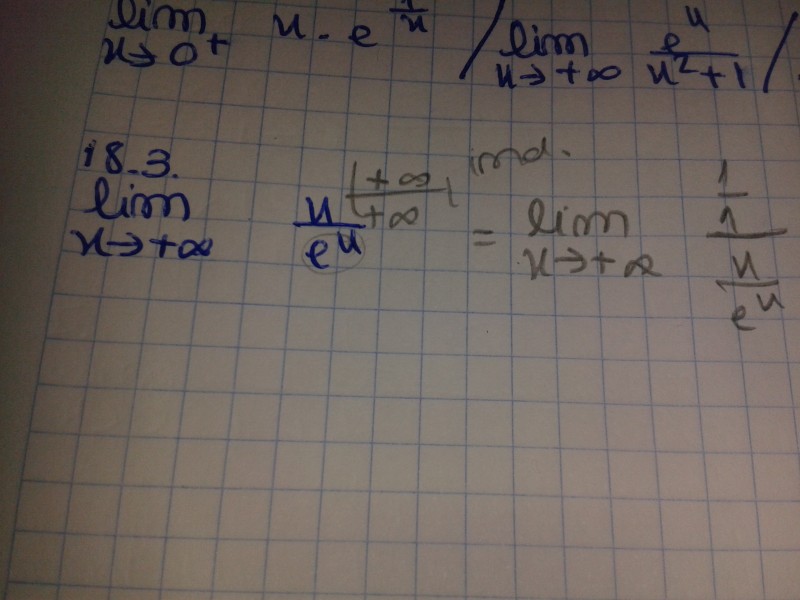 lim x→0+ x · e^(1/x) / lim x→+∞ e^x/(x²+1) /
18.3.
lim x→+∞ x/e^x (+∞/+∞) ind. = lim x→+∞ (1/1)/(x/e^x)